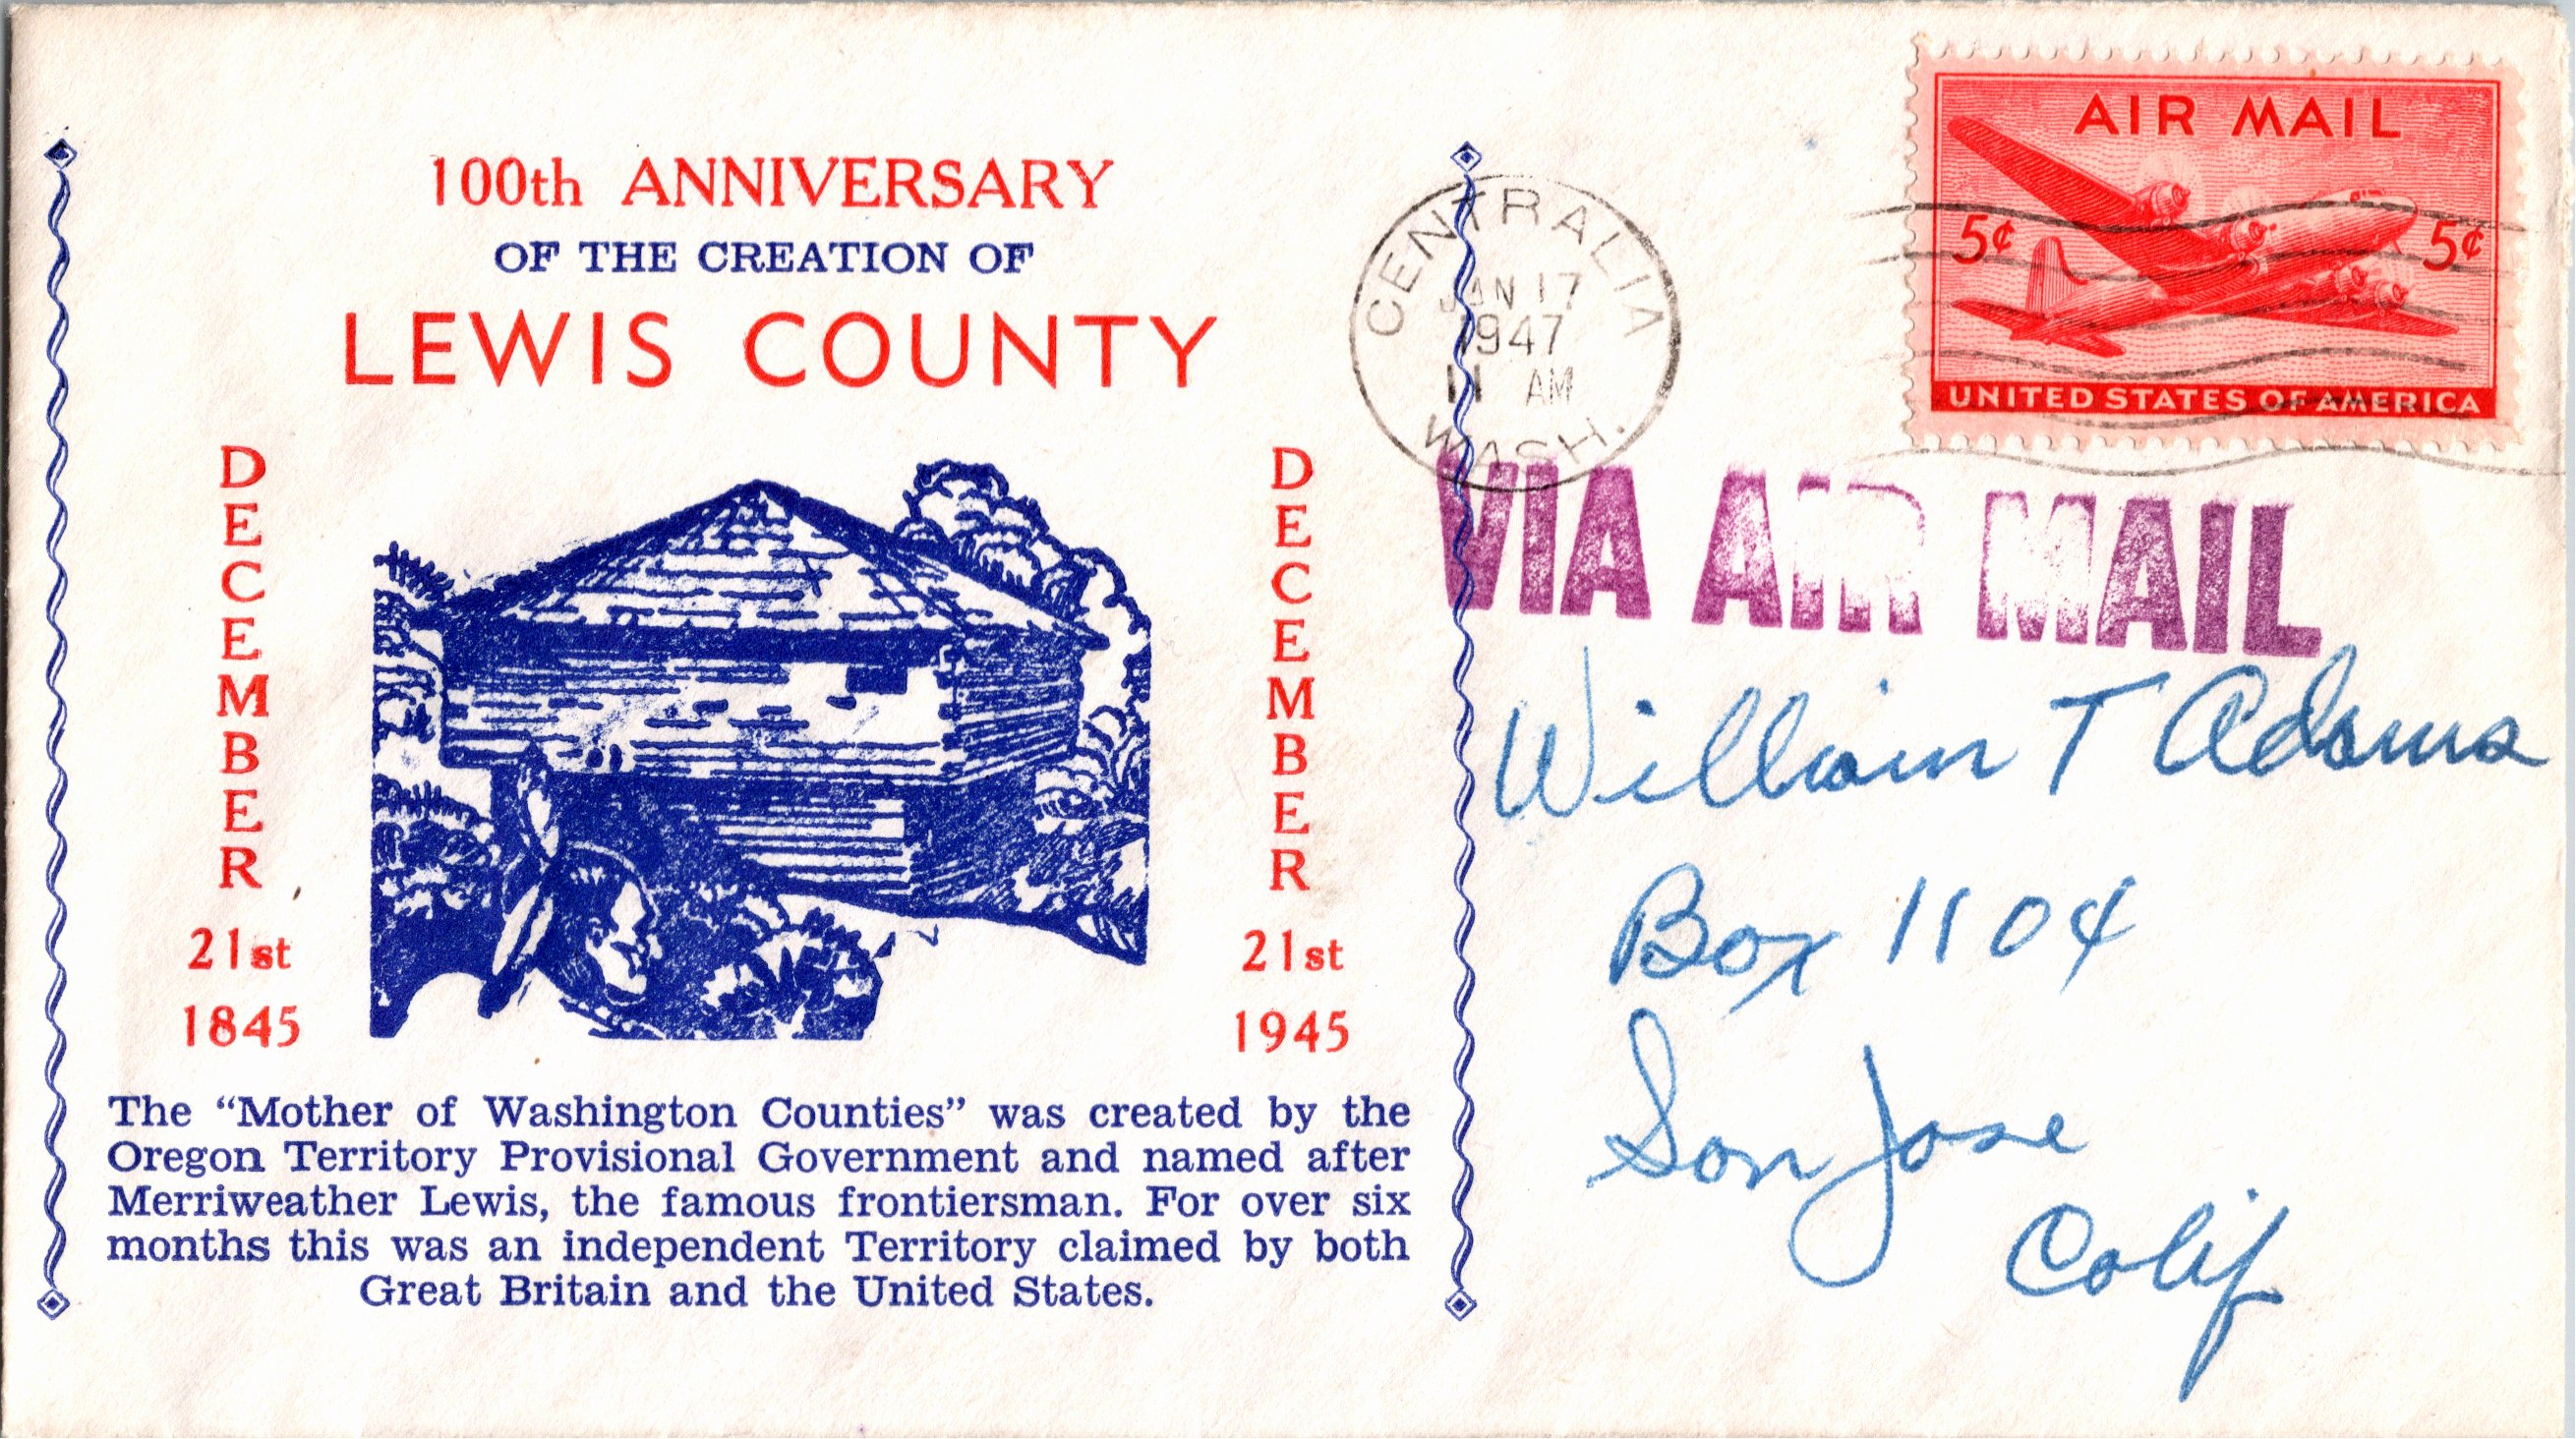 100th ANNIVERSARY
OF THE CREATION OF
LEWIS COUNTY
DECEMBER
21st
1845
DECEMBER
21st
1945
The “Mother of Washington Counties” was created by the
Oregon Territory Provisional Government and named after
Merriweather Lewis, the famous frontiersman. For over six
months this was an independent Territory claimed by both
Great Britain and the United States.
CENTRALIA
JAN 17
1947
11 AM
WASH.
AIR MAIL
5¢ 5¢
UNITED STATES OF AMERICA
VIA AIR MAIL
William T Adams
Box 1104
San Jose
Calif